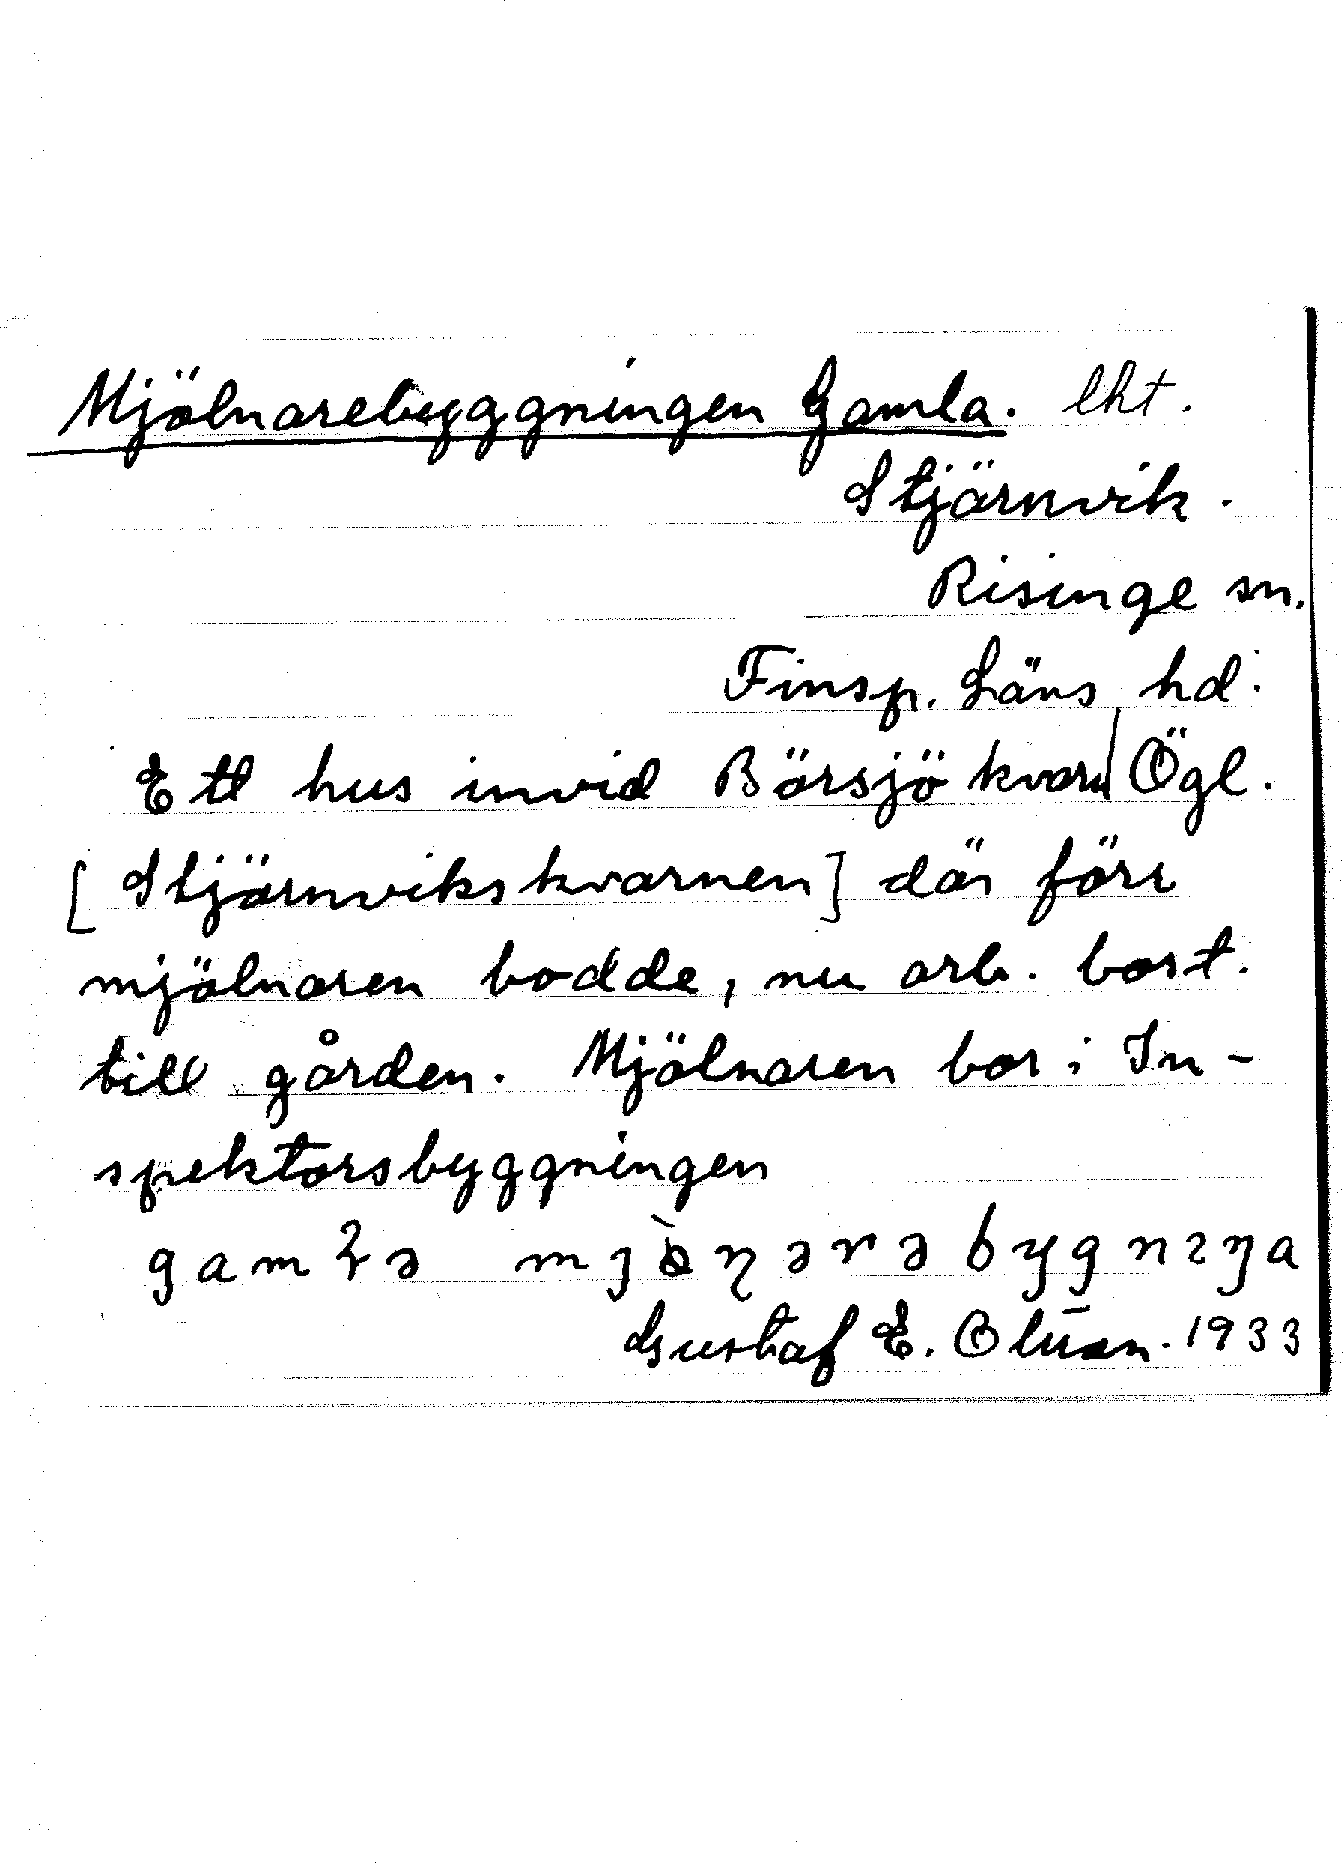 Mjölnarebyggningen Gamla. lht.
Stjärnvik.
Risinge sn.
Finsp. Läns hd.
Ett hus invid Börsjö kvarn Ögl.
[Stjärnvikskvarnen] där förr
mjölnaren bodde, nu arb. bost.
till gården. Mjölnaren bor i In-
spektorsbyggningen
Gustaf E. 1933